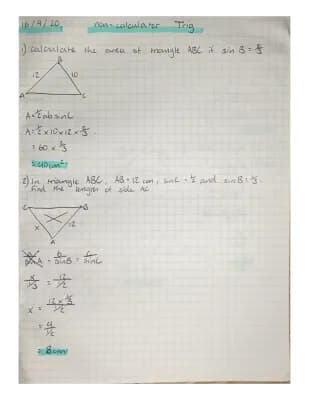 16/9/20 non-calculator Trig
1) Calculate the area of triangle ABC if sin B = 2/3
B
12 10
A C
A = 1/2 ab sin C
A = 1/2 × 10 × 12 × 2/3
= 60 × 2/3
= 40cm²
2) In triangle ABC, AB = 12 cm, sin C = 1/2 and sin B = 1/3.
Find the length of side AC
C B
x 12
A
a/sin A = b/sin B = c/sin C
x/1/3 = 12/1/2
x = 12 × 1/3 / 1/2
= 4/1/2
= 8cm